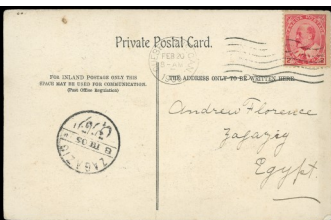 Private Postal Card.
FOR INLAND POSTAGE ONLY THIS
SPACE MAY BE USED FOR COMMUNICATION.
(Post Office Regulation)
THE ADDRESS ONLY TO BE WRITTEN HERE
FEB 20
Andrew Florence
Zagazig
Egypt.
ZAGAZIG